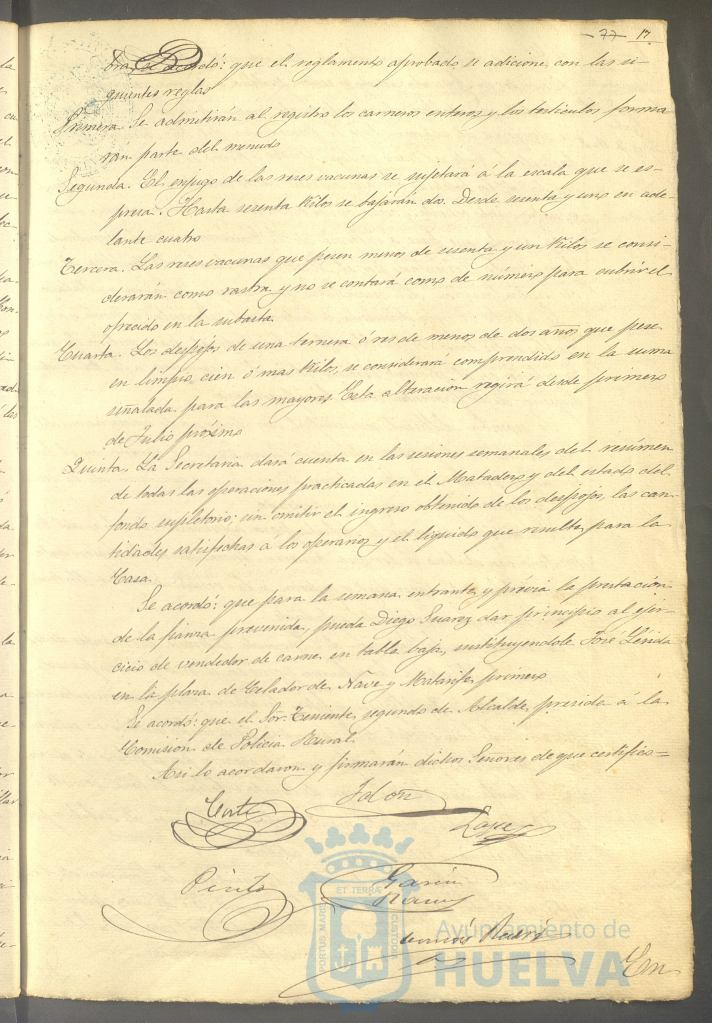 77 17.
se acordó: que el reglamento aprobado se adicione con las si-
guientes reglas
Primera. Se admitirán al registro los carneros enteros y los testiculos forma-
rán parte del menudo
Segunda. El enjugo de las reses vacunas se sujetará á la escala que se es-
presa. Hasta sesenta kilos se bajarán dos. Desde sesenta y uno en ade-
lante cuatro
Tercera. Las reses vacunas que pesen menos de sesenta y un kilos se consi-
derarán como rastra y no se contará como de número para cubrir el
ofrecido en la subasta.
Cuarta. Los despojos de una ternera ó res de menos de dos años que pese
en limpio, cien ó mas kilos, se considerará comprendido en la suma
señalada para las mayores Esta alteración regirá desde primero
de Julio próximo
Quinta. La Secretaria dará cuenta en las sesiones semanales del resúmen
de todas las operaciones practicadas en el Matadero y del estado del
fondo supletorio; sin omitir el ingreso obtenido de los despojos, las can-
tidades satisfechas á los operarios y el liquido que resulta para la
Casa.
Se acordó: que para la semana entrante, y prévia la prestación
de la fianza prevenida, pueda Diego Suarez dar principio al ejer-
cicio de vendedor de carne en tabla baja, sustituyendole José
en la plaza de Celador de Nave y Matarife primero
Se acordó: que el Sor. Teniente segundo de Alcalde, presida á la
Comision de Policia Rural.
Asi lo acordaron y firmarán dichos Señores de que certifico=
Pinto
Garcia
Ramos
En
PORTUS MARIS
ET TERRÆ
CUSTODIA
Ayuntamiento de
HUELVA